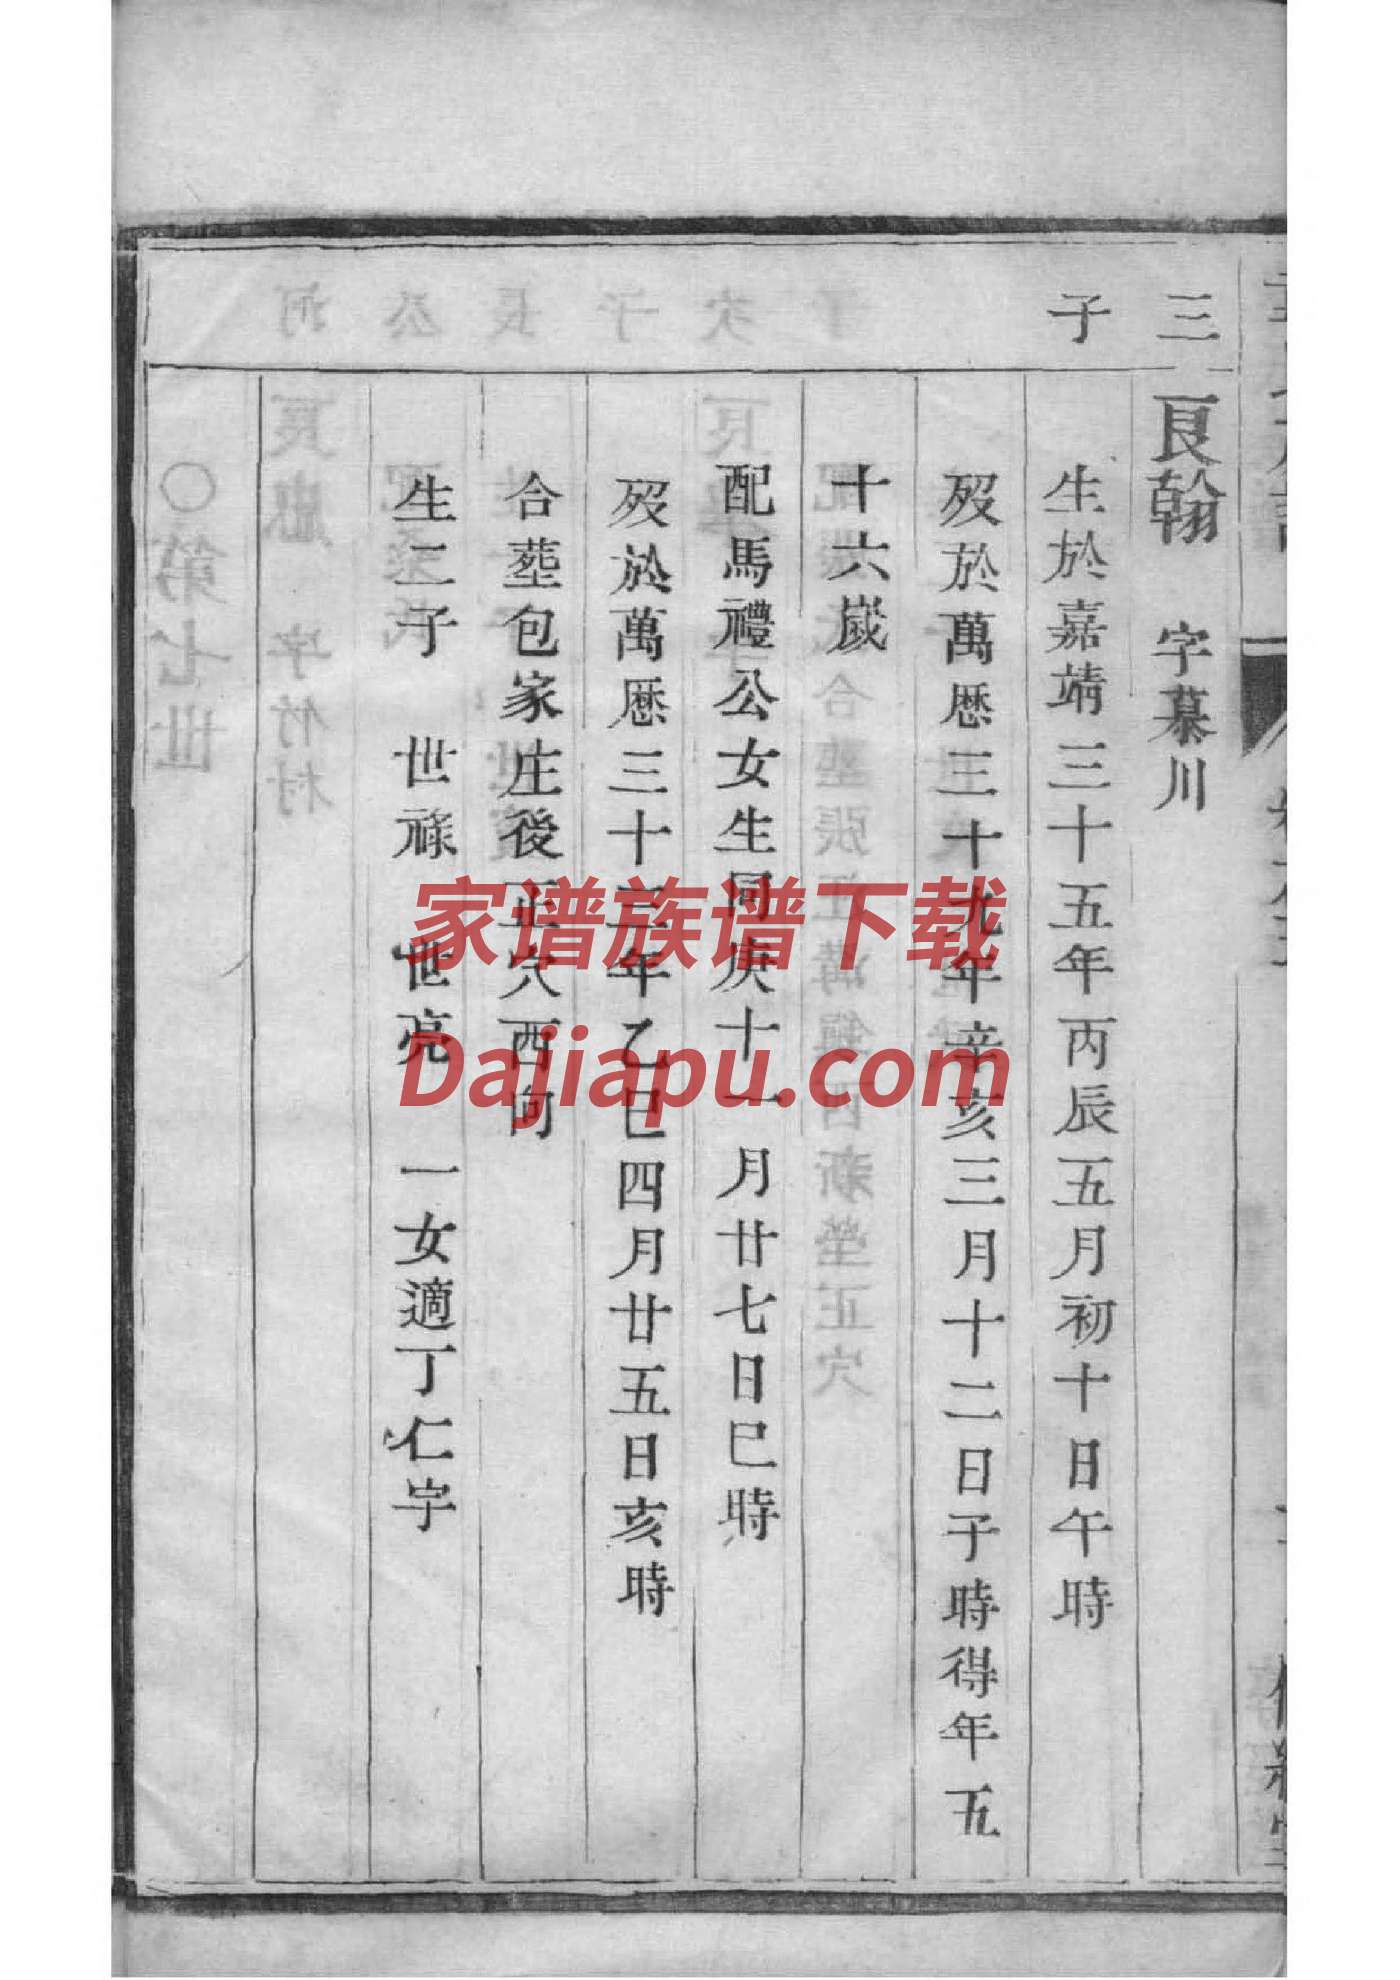 三子
良翰 字慕川
生於嘉靖三十五年丙辰五月初十日午時
歿於萬厯三十九年辛亥三月十二日子時得年五
十六歲
配馬禮公女生同庚十一月廿七日巳時
歿於萬厯三十三年乙巳四月廿五日亥時
合塟包家庄後正穴西向
生二子 世祿 世亮 一女適丁仁宇
家谱族谱下载
Dajiapu.com